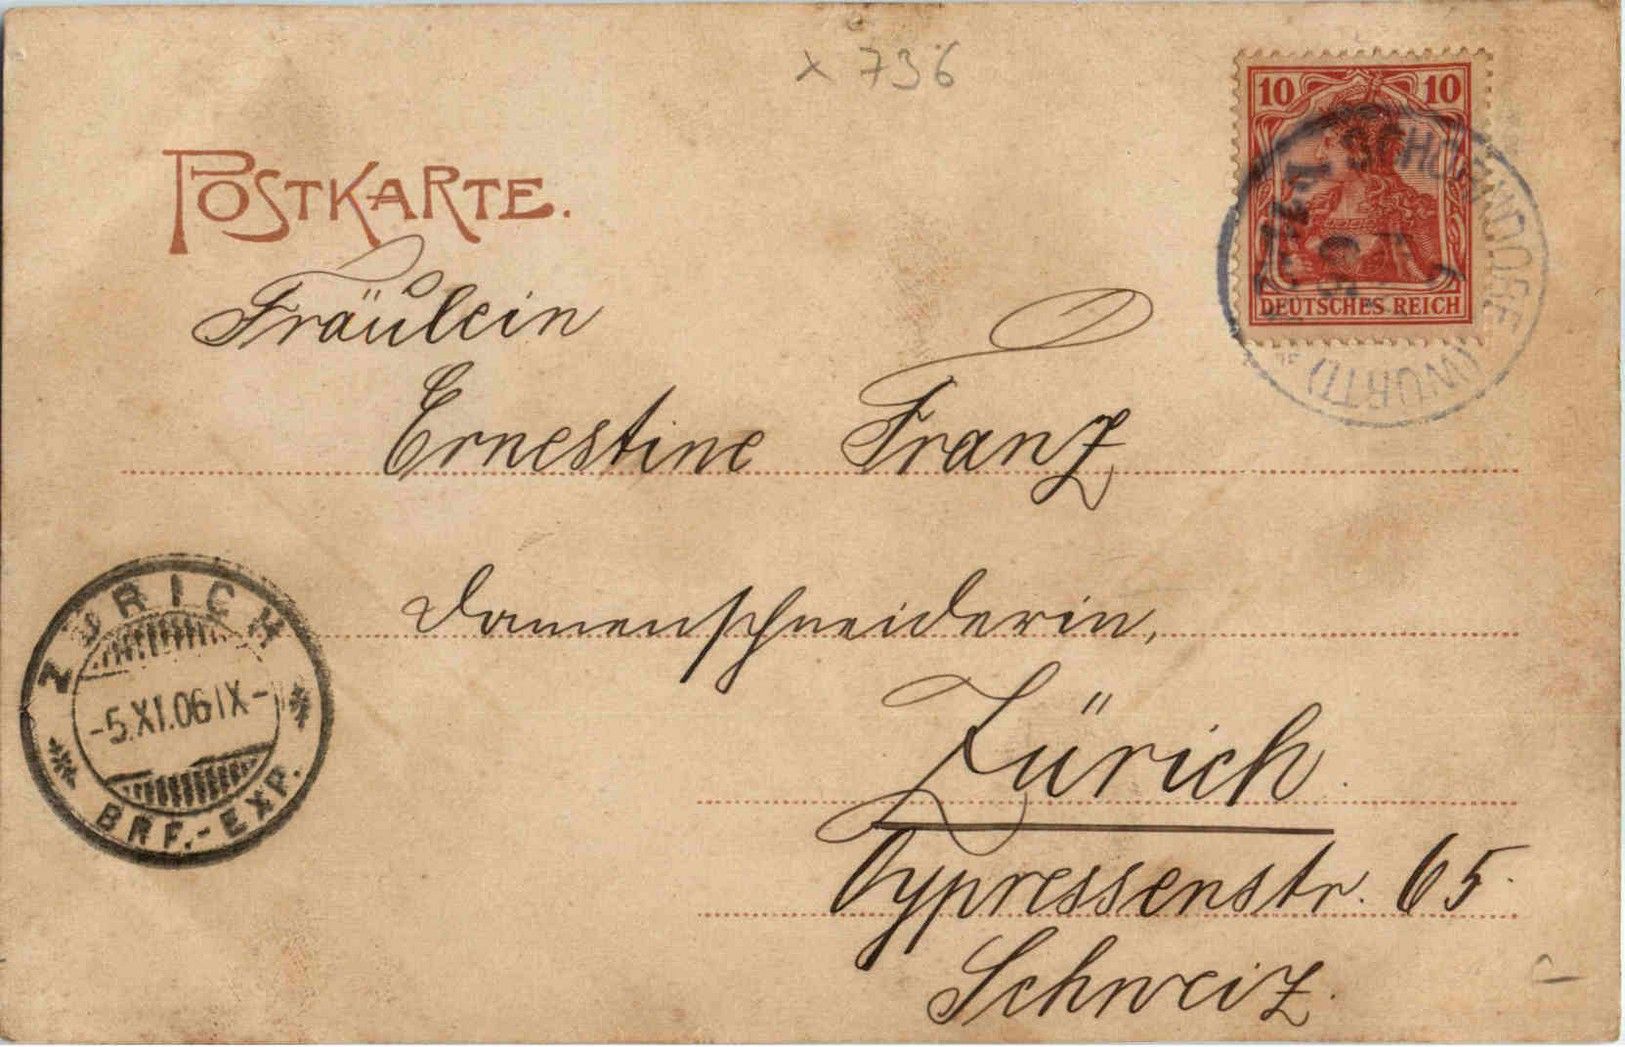 x 736
POSTKARTE.
10 10
DEUTSCHES REICH
SCHORNDORF
(WÜRTT)
Fräulein
Ernestine Franz
Damenschneiderin,
Zürich.
Cypressenstr. 65.
Schweiz.
ZÜRICH
-5.XI.06 IX-
BRF.-EXP.